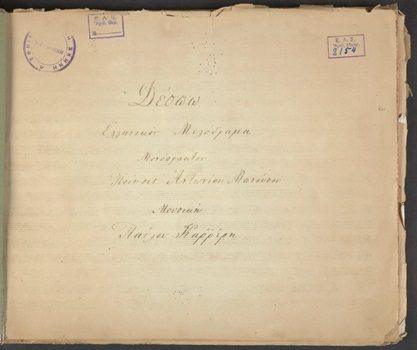 Ε. Λ. Σ.
Ε. Λ. Σ.
2154
Δέσπω
Ελληνικόν Μελόδραμα
Μονόπρακτον
Ποίησις Αντωνίου Μανούσου
Μουσική
Παύλου Καρρέρη